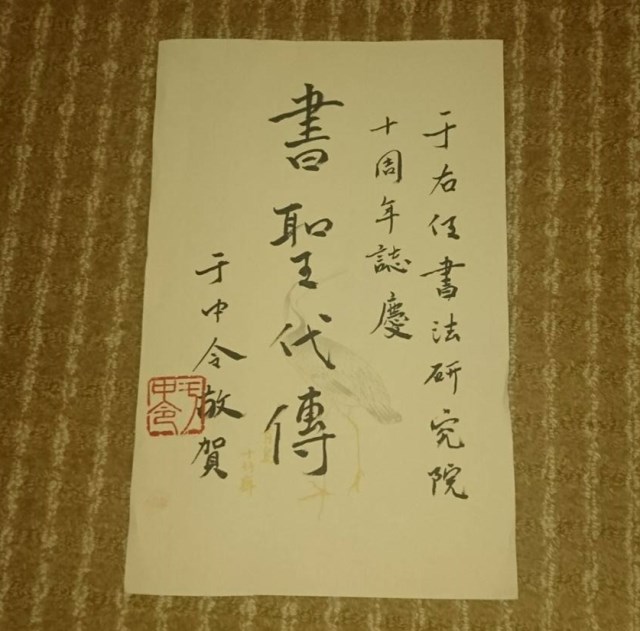 于右任書法研究院
十周年誌慶
書聖代傳
于中令敬賀